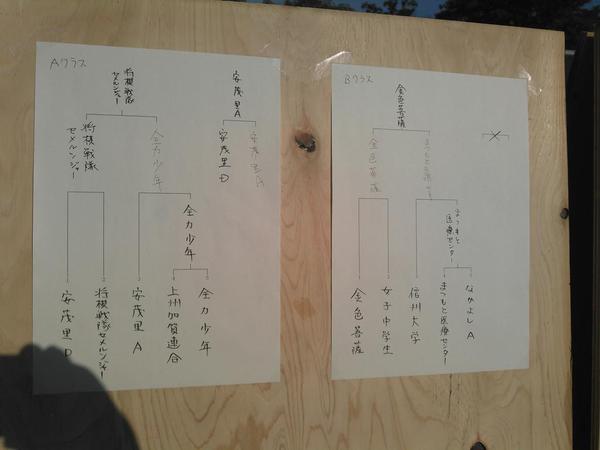 Aクラス
将棋戦隊
セメルンジャー
安茂里A
将棋戦隊
セメルンジャー
全力少年
安茂里D
安茂里A
全力少年
安茂里D
将棋戦隊セメルンジャー
安茂里A
上州加賀連合
全力少年
Bクラス
金色菩薩
金色菩薩
まつもと
医療センター
金色菩薩
女子中学生
信州大学
まつもと医療センター
なかよしA